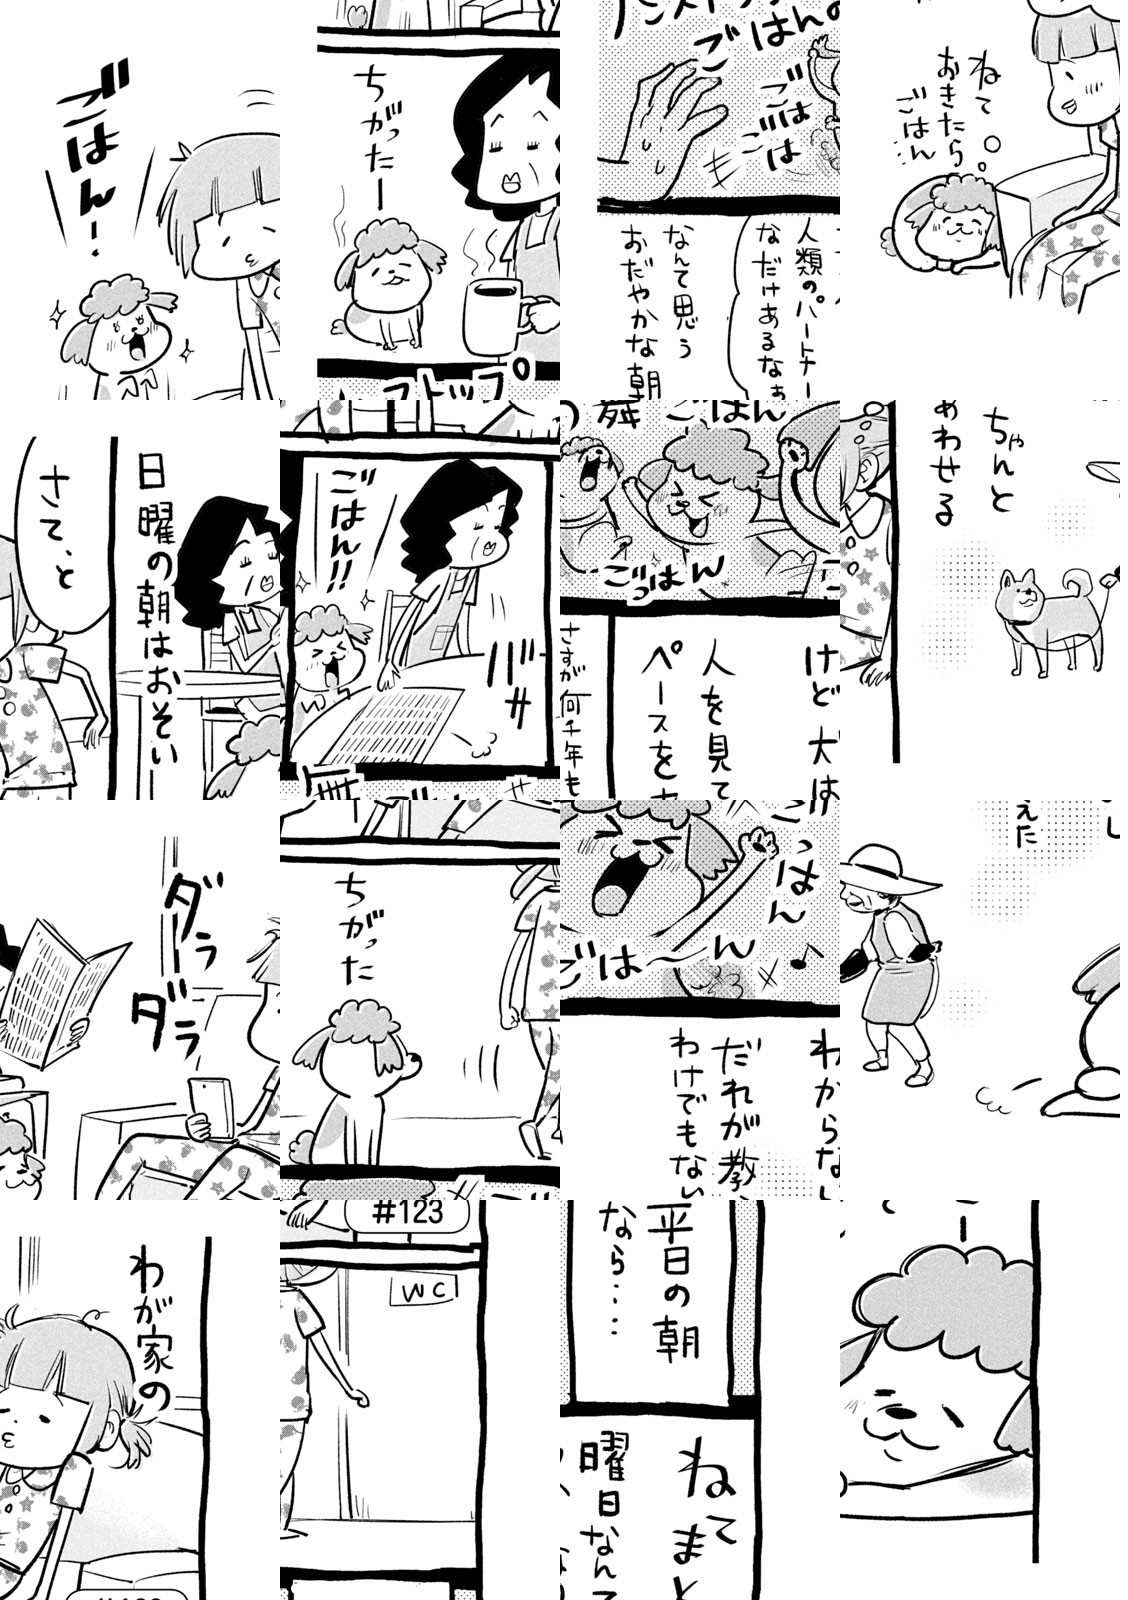 ごはん!
ちがったー
ストップ。
ごはんの
ごはは
ごはは
人類のパートナー
なだけあるなぁ
なんて思う
おだやかな朝
ねて
おきたら
ごはん
さて、と
日曜の朝はおそい
ごはん!!
バサ
舞
ごはん
ごっはん
けど犬は
人を見て
ペースを
さすが何千年も
ちゃんと
あわせる
ダラ
ダラ
ちがった
ごっはん
ごは〜ん♪
わからな
だれが教
わけでもない
えた
わが家の
#123
WC
平日の朝
なら‥‥
ねて
まと
曜日なんて